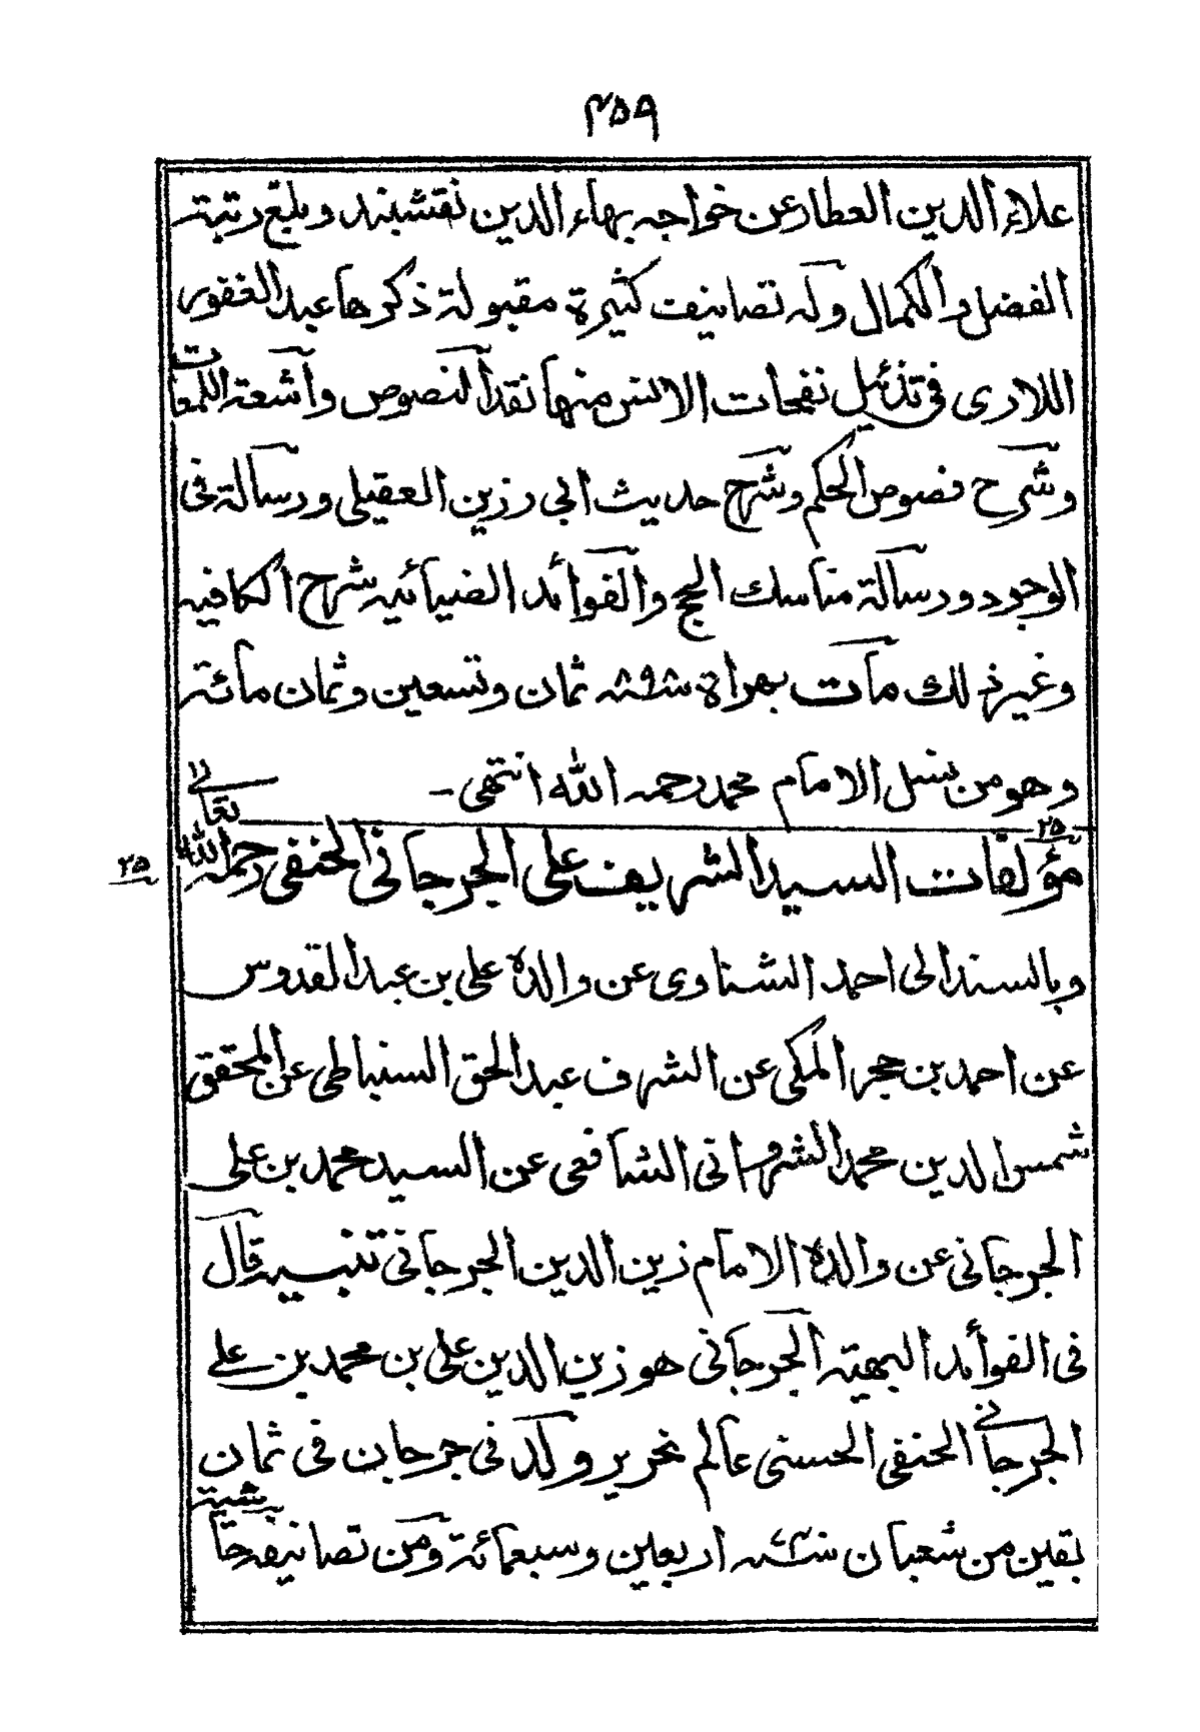 ۳۵۹
علاء الدين العطار عن خواجه بهاء الدين نقشبند وبلغ رتبة
الفضل والكمال وله تصانيف كثيرة مقبولة ذكرها عبد الغفور
اللاری فی تذئيل نفحات الانس منها نقد النصوص واشعة اللمعات
وشرح فصوص الحكم وشرح حديث ابی رزين العقيلی ورسالة فی
الوجود ورسالة مناسك الحج والفوائد الضيائيه شرح الكافيه
وغير ذلك مات بهراة ۸۹۸ ثمان وتسعين وثمان مائة
وهو من نسل الامام محمد رحمه الله انتهی -
۲۵ مؤلفات السيد الشريف علی الجرجانی الحنفی رحمه الله تعالی ۲۵
وبالسند الی احمد الشناوی عن والده علی بن عبد القدوس
عن احمد بن حجر المكی عن الشرف عبد الحق السنباطی عن المحقق
شمس الدين محمد الشروانی الشافعی عن السيد محمد بن علی
الجرجانی عن والده الامام زين الدين الجرجانی تنبيه قال
فی الفوائد البهية الجرجانی هو زين الدين علی بن محمد بن علی
الجرجانی الحنفی الحسنی عالم نحرير ولد فی جرجان فی ثمان
بقين من شعبان سنه اربعين وسبعمائة ومن تصانيفه حاشية